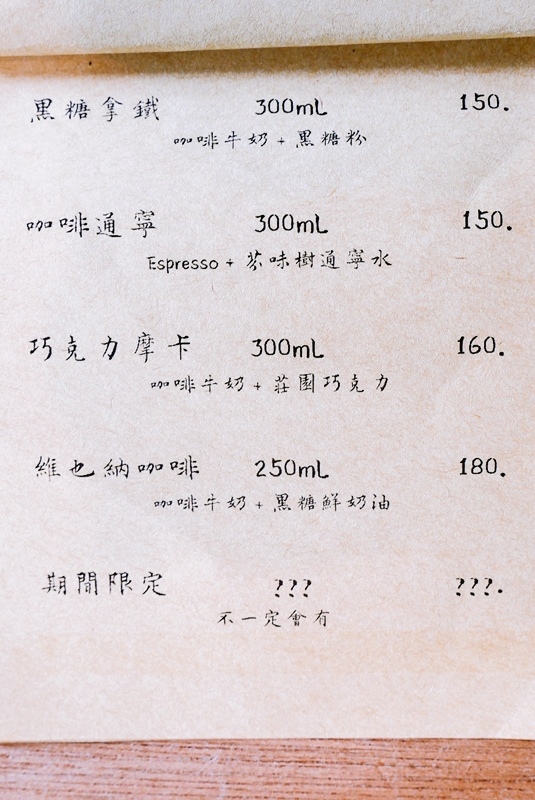 黑糖拿鐵 300mL 150.
咖啡牛奶 + 黑糖粉
咖啡通寧 300mL 150.
Espresso + 芬味樹通寧水
巧克力摩卡 300mL 160.
咖啡牛奶 + 莊園巧克力
維也納咖啡 250mL 180.
咖啡牛奶 + 黑糖鮮奶油
期間限定 ??? ???.
不一定會有